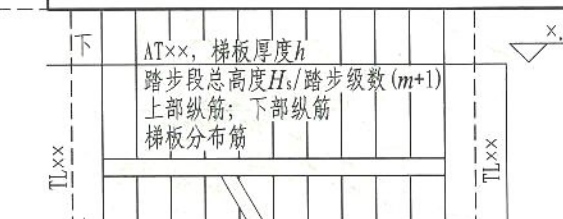 下
AT××，梯板厚度h
踏步段总高度Hs/踏步级数(m+1)
上部纵筋；下部纵筋
梯板分布筋
TL××
TL××
×.